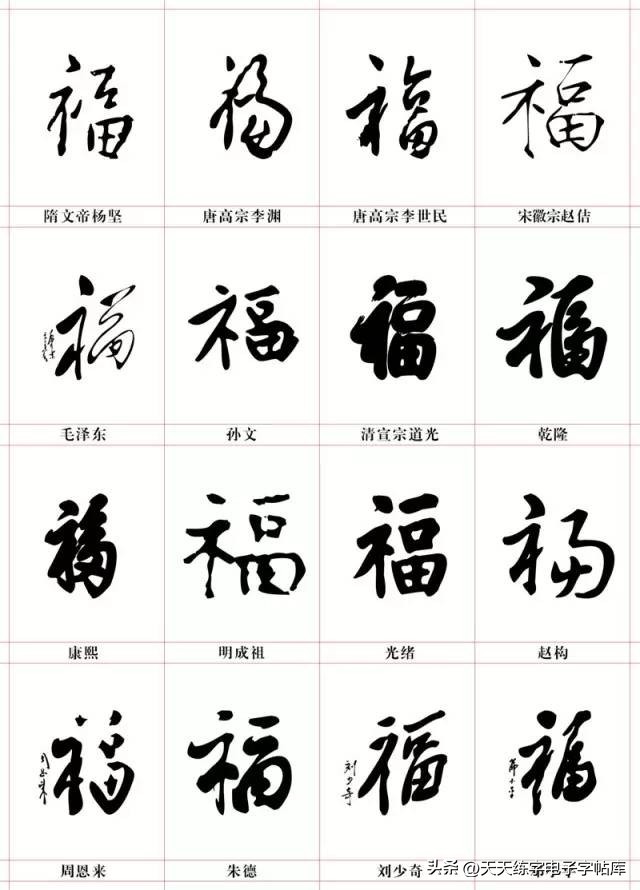 福 福 福 福
隋文帝杨坚 唐高宗李渊 唐高宗李世民 宋徽宗赵佶
福 福 福 福
毛泽东 孙文 清宣宗道光 乾隆
福 福 福 福
康熙 明成祖 光绪 赵构
福 福 福 福
周恩来
刘少奇
周恩来 朱德 刘少奇
头条 @天天练字电子字帖库